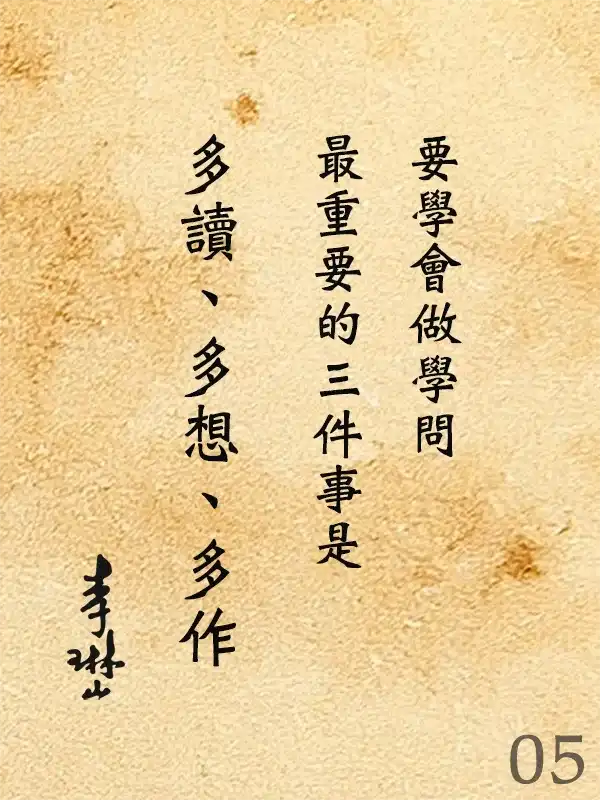 要學會做學問
最重要的三件事是
多讀、多想、多作
李琳山
05